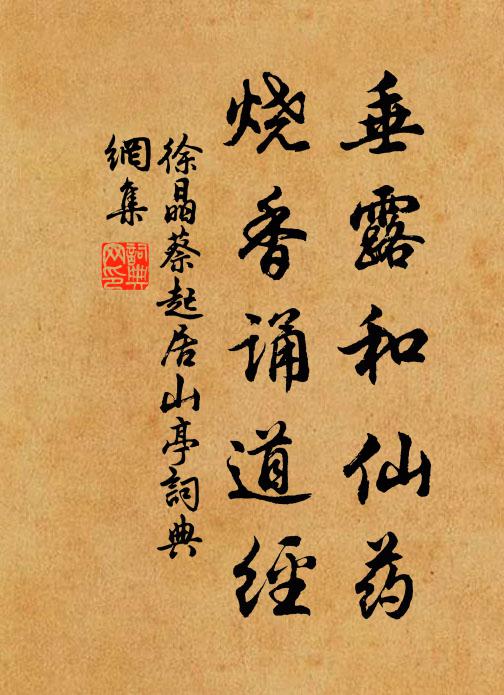 垂露和仙药
烧香诵道经
徐晶蔡起居山亭词典
網集
詞典网印